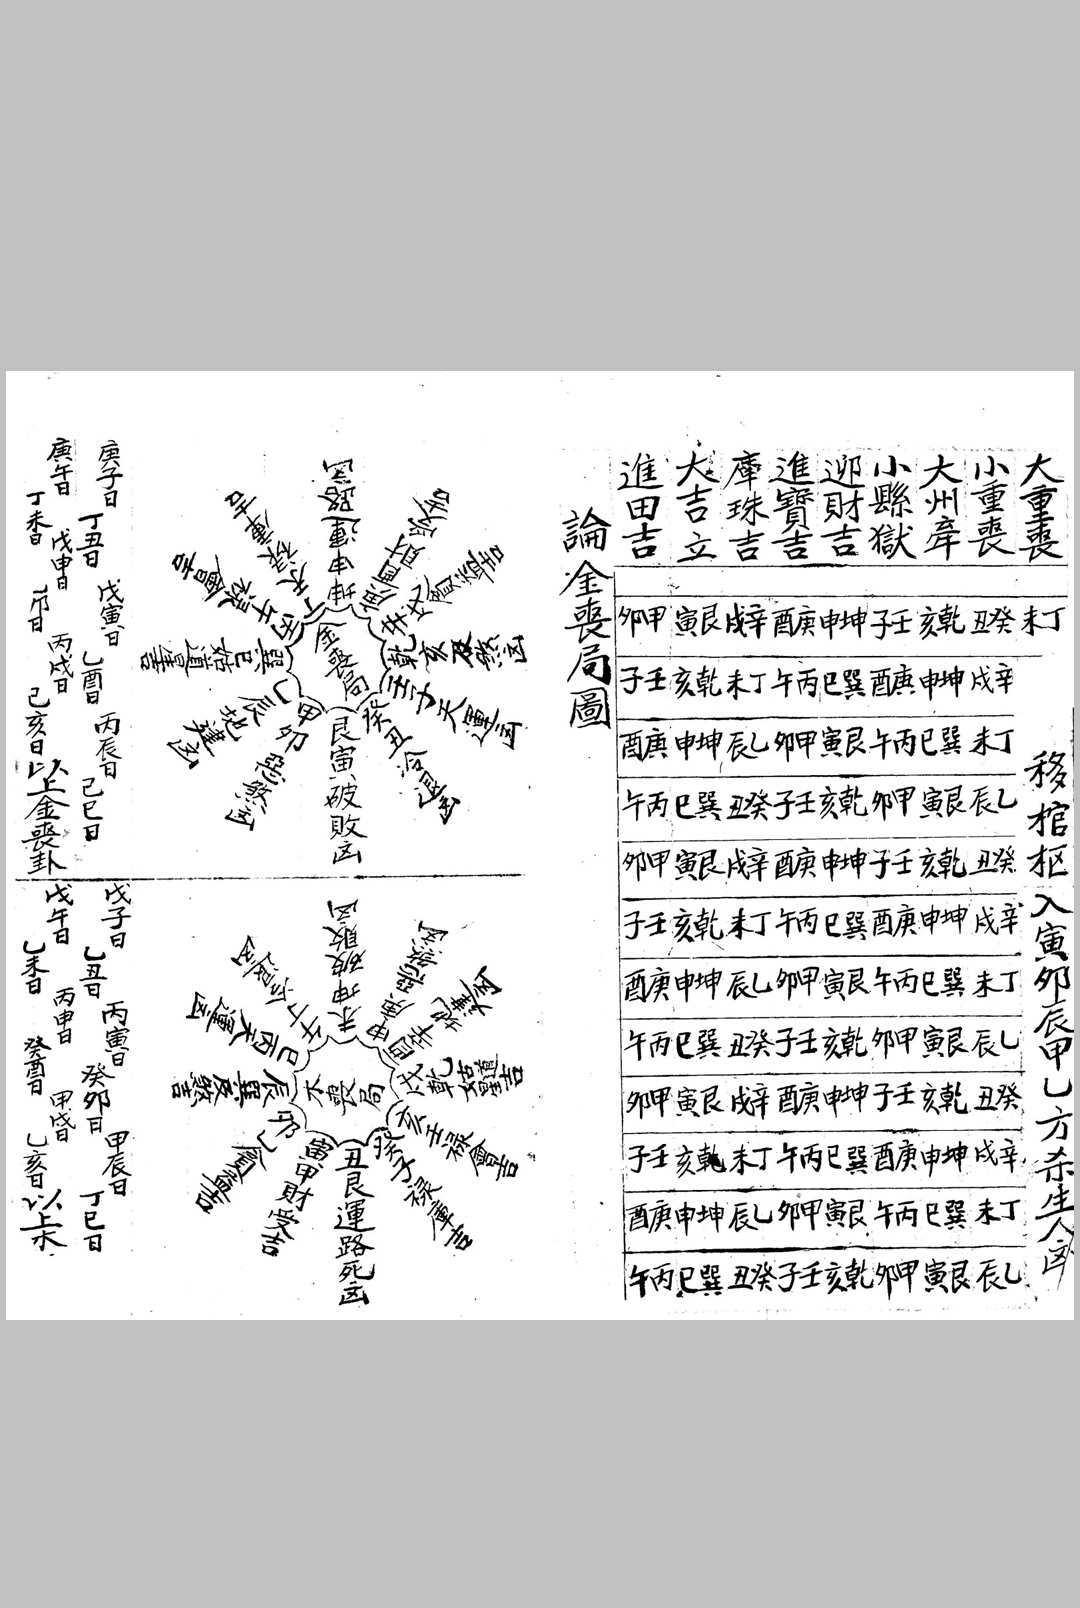 大重喪
小重喪
大州牢
小縣獄
迎財吉
進寶吉
庫珠吉
大吉立
進田吉
卯甲 寅艮 戌辛 酉庚 申坤 子壬 亥乾 丑癸 未丁
子壬 亥乾 未丁 午丙 巳巽 酉庚 申坤 戌辛
酉庚 申坤 辰乙 卯甲 寅艮 午丙 巳巽 未丁
午丙 巳巽 丑癸 子壬 亥乾 卯甲 寅艮 辰乙
卯甲 寅艮 戌辛 酉庚 申坤 子壬 亥乾 丑癸
子壬 亥乾 未丁 午丙 巳巽 酉庚 申坤 戌辛
酉庚 申坤 辰乙 卯甲 寅艮 午丙 巳巽 未丁
午丙 巳巽 丑癸 子壬 亥乾 卯甲 寅艮 辰乙
卯甲 寅艮 戌辛 酉庚 申坤 子壬 亥乾 丑癸
子壬 亥乾 未丁 午丙 巳巽 酉庚 申坤 戌辛
酉庚 申坤 辰乙 卯甲 寅艮 午丙 巳巽 未丁
午丙 巳巽 丑癸 子壬 亥乾 卯甲 寅艮 辰乙
移棺柩入寅卯辰甲乙方杀生人凶
論金喪局圖
金喪局
坤申運路凶
乾亥
凶
壬子天運凶
癸丑冷退凶
艮寅破敗凶
甲卯惡煞凶
乙辰地建凶
巽巳
丙午祿會吉
丁未祿庫吉
庚子日 丁丑日 戊寅日 乙酉日 丙辰日 己巳日
庚午日 戊申日 丙戌日
丁未日
己亥日以上金喪卦
局
未坤破敗凶
乾戌
亥壬祿會吉
癸子祿庫吉
丑艮運路死凶
寅甲財受吉
卯乙
辰巽
巳丙天運凶
午丁冷退凶
戊子日 乙丑日 丙寅日 癸卯日 甲辰日 丁巳日
戊午日 丙申日 甲戌日
乙未日 癸酉日 乙亥日以上木